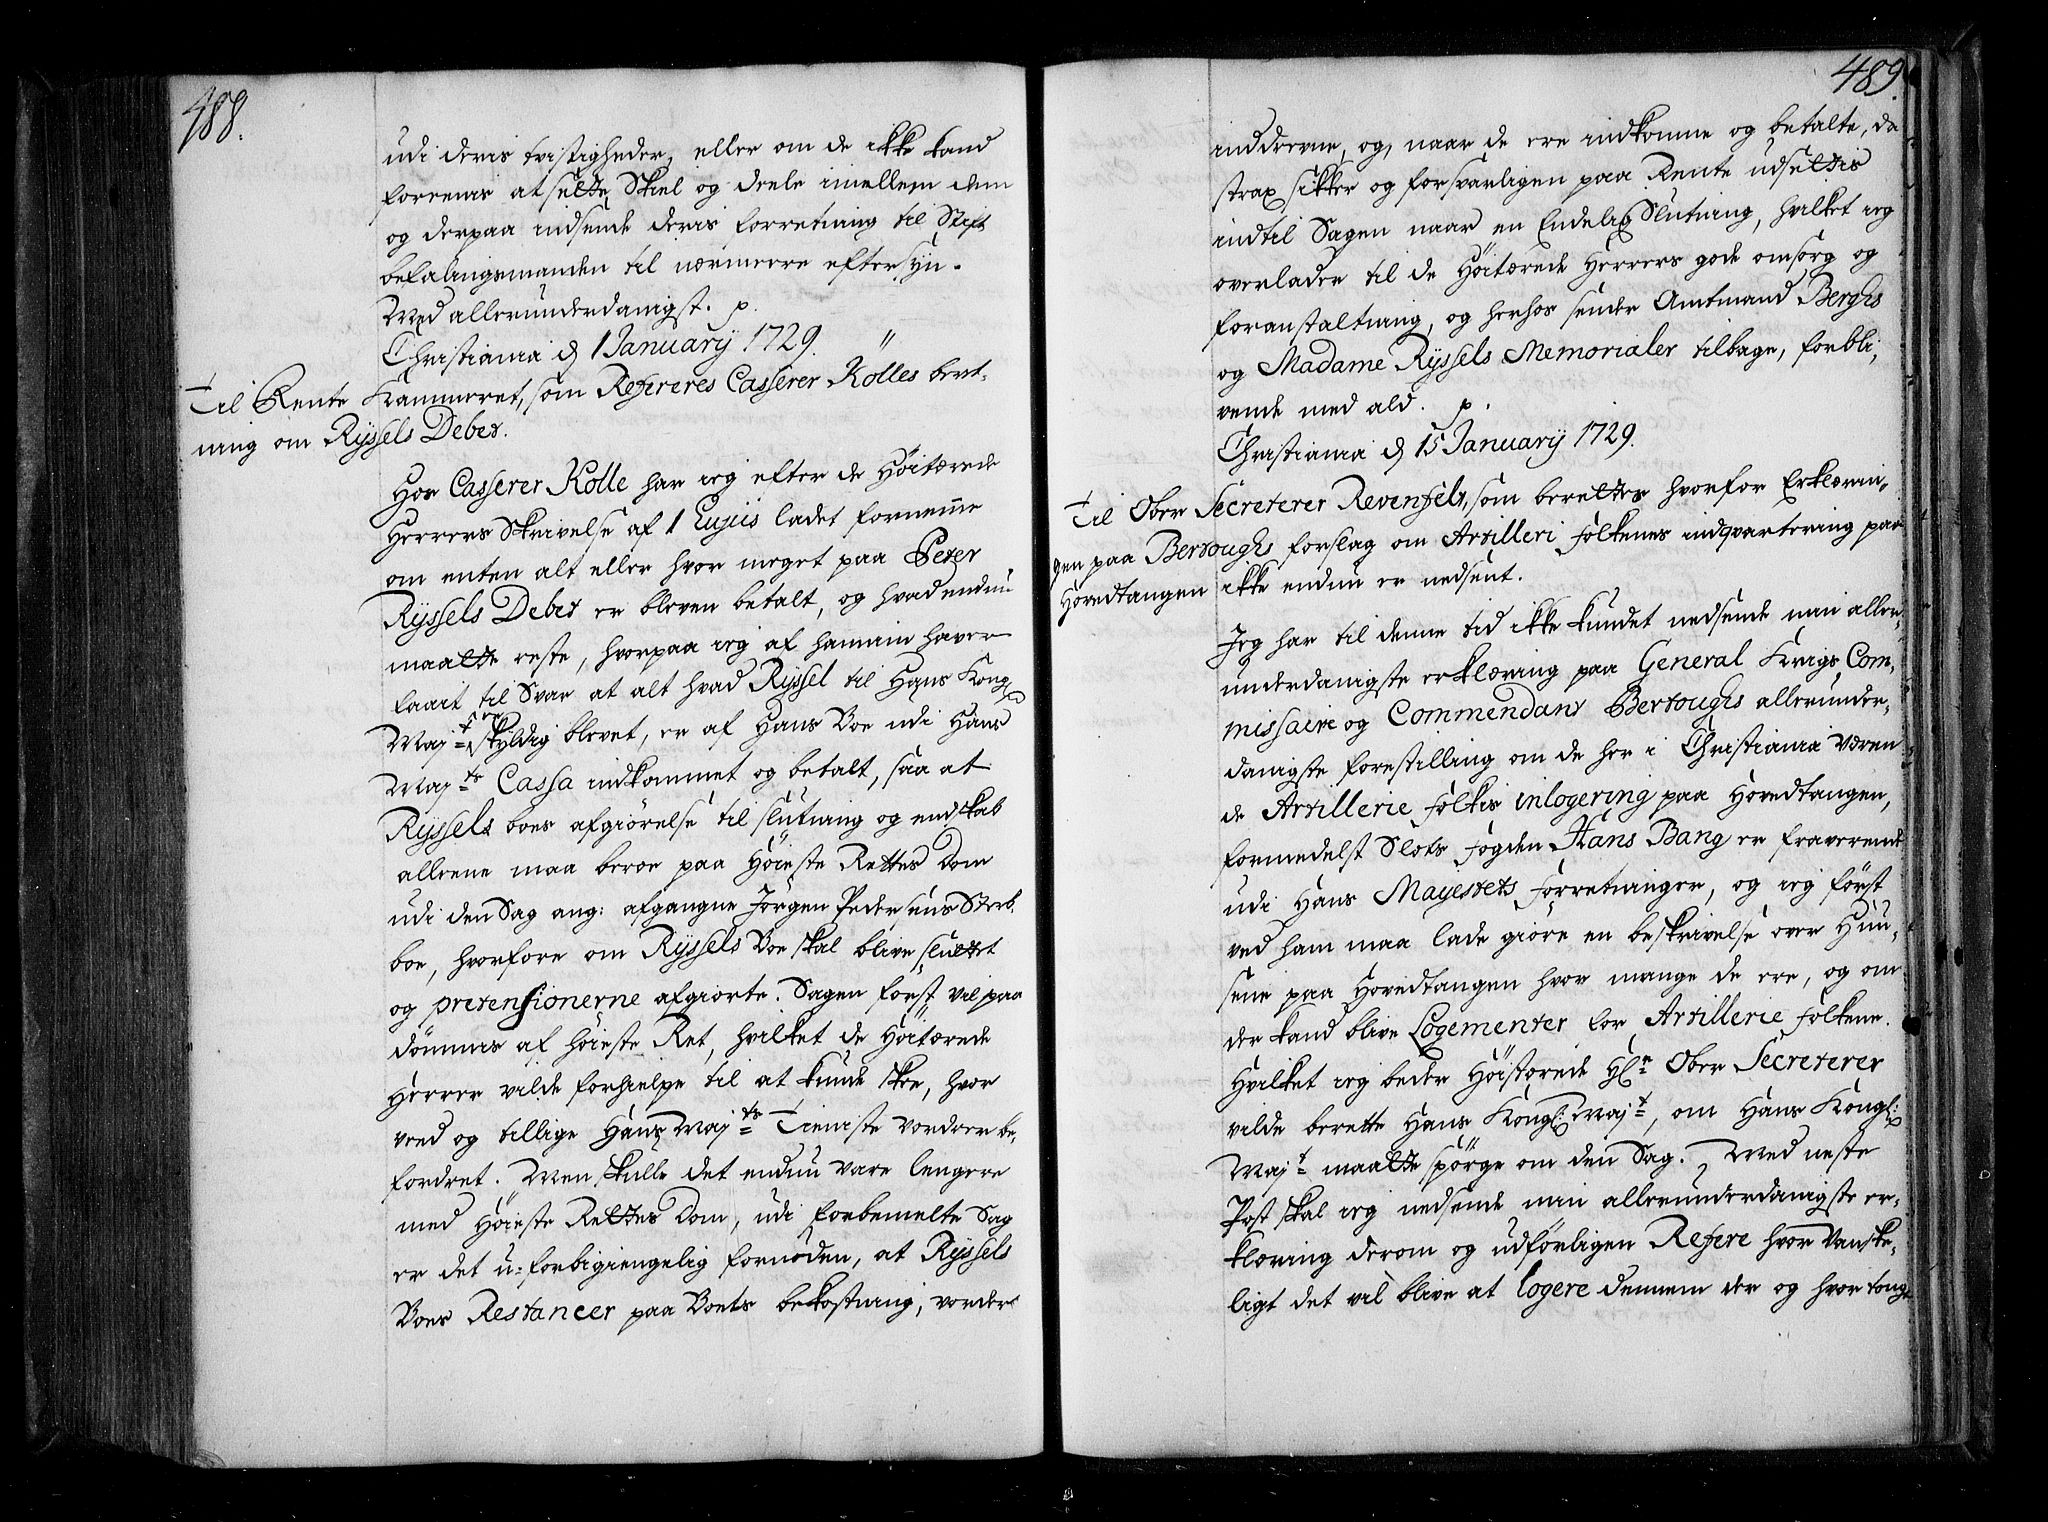 488.
udi deris tvistigheder, eller om de ikke kand
foreenis at sette Skiel og deele imellem dem
og derpaa indsende deris forretning til Stift
befalingsmanden til nærmere eftersÿn.
Med allerunderdanigst. p.
Christiania d 1 Januarÿ 1729.
Til Rente Kammeret, som Refereres Casserer Kölles beret-
ning om Rÿssels Debet.
Hos Casserer Kölle har ieg efter de Höitærede
Herrers Skrivelse af 1 ladet fornemme
om enten alt eller hvor meget paa Peter
Rÿssels Debet er bleven betalt, og hvad endnu
maatte reste, hvorpaa ieg af hannem haver
faait til Svar at alt hvad Rÿssel til Hans Kongl
Majt skÿldig blevet, er af Hans Boe udi Hans
Majts Cassa indkommet og betalt, saa at
Rÿssels boes afgiörelse til slutning og endskab
alleene maa beroe paa Höieste Rettes Dom
udi den Sag ang: afgangne Jörgen Pedersens Sterb-
boe, hvorfore om Rÿssels Boe skal blive sluttet
og pretensionerne afgiorte. Sagen först vil paa
dömmes af höieste Ret, hvilket de Höitærede
Herrer vilde forhielpe til at kunde skee, hvor
ved og tillige Hans Majts Tieniste vorder be-
fordret. Men skulle det endnu vare lengere
med Höieste Rettes Dom, udi forbemelte Sag
er det u-forbigiengelig fornöden, at Rÿssels
Boes Restancer paa Boets bekostning, vorder
489.
inddrevne, og, naar de ere indkomne og betalte, da
strax sikker og forsvarligen paa Rente udsettis
indtil Sagen naar en Endelig Slutning, hvilket ieg
overlader til de Höitærede Herrers gode omsorg og
foranstaltning, og herhos sender Amtmand Berghs
og Madame Rÿssels Memorialer tilbage, forbli-
vende med ald. p.
Christiania d 15 Januarÿ 1729.
Til Ober Secreterer Revenfelt, som berettes hvorfor Erklærin-
gen paa Bertoughs forslag om Artilleri folkenes indqvartering paa
Hovedtangen ikke endnu er nedsent.
Jeg har til denne tid ikke kundet nedsende min aller-
underdanigste erklæring paa General Krigs Com-
missaire og Commendant Bertoughs allerunder-
danigste forestilling om de her i Christiania væren-
de Artillerie folkis inlogering paa Hovedtangen,
formedelst Slots fogden Hans Bang er fraverende
udi Hans Mayestets forretninger, og ieg först
ved ham maa lade giöre en beskrivelse over Huu-
sene paa Hovedtangen hvor mange de ere, og om
der kand blive Logementer for Artillerie folkene.
Hvilket ieg beder Höistærede Hr Ober Secreterer
vilde berette Hans Kongl: Majt, om Hans Kongl:
Majt maatte spörge om den Sag. Med neste
Post skal ieg nedsende min allerunderdanigste er-
klæring derom og udförligen Refere hvor vanske-
ligt det vil blive at logere dennem der og hvor tungt